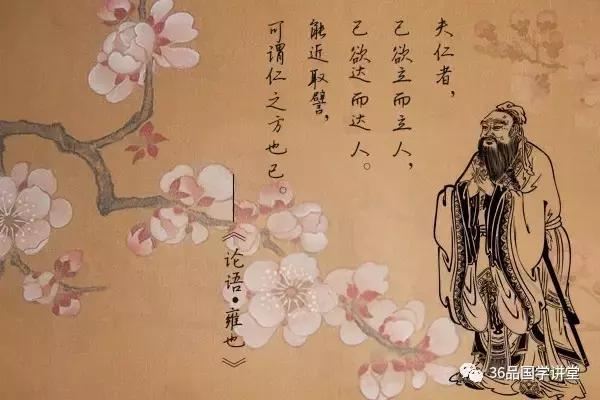 夫仁者，
己欲立而立人，
己欲达而达人。
能近取譬，
可谓仁之方也已。
——《论语•雍也》
36品国学讲堂